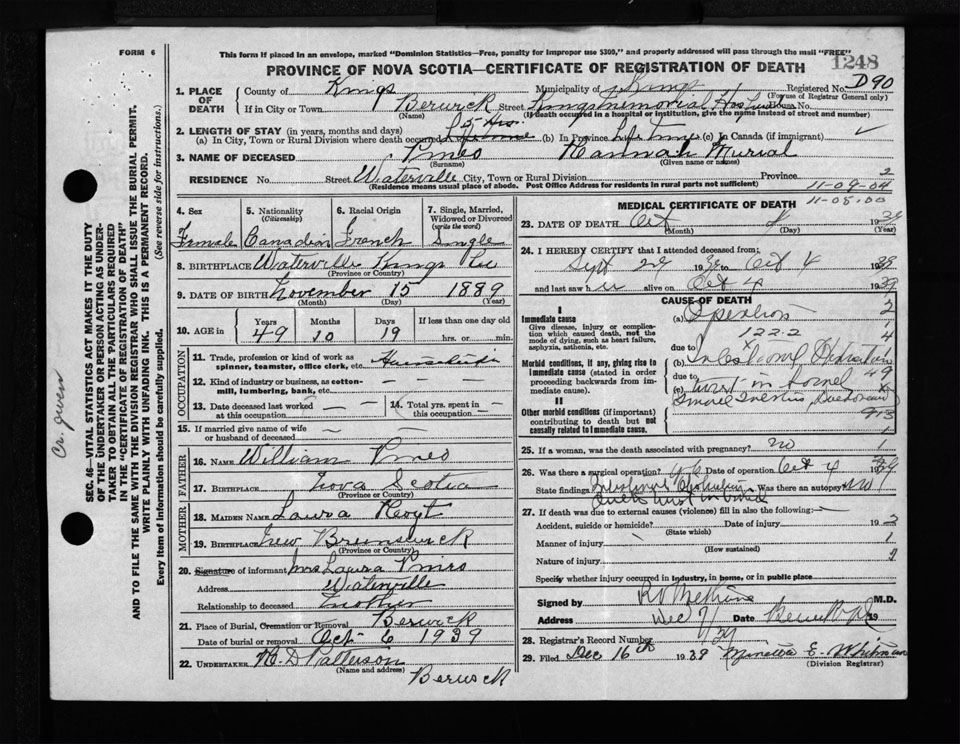 FORM 6
This form if placed in an envelope, marked "Dominion Statistics—Free, penalty for improper use $300," and properly addressed will pass through the mail "FREE"
1248
PROVINCE OF NOVA SCOTIA—CERTIFICATE OF REGISTRATION OF DEATH
D90
1. PLACE OF DEATH
County of Kings Municipality of Kings Registered No.
(For use of Registrar General only)
If in City or Town Berwick Street Kings Memorial Hospital House No.
(Name) (If death occurred in a hospital or institution, give the name instead of street and number)
2. LENGTH OF STAY (in years, months and days)
(a) In City, Town or Rural Division where death occurred (b) In Province Life time (c) In Canada (if immigrant)
3. NAME OF DECEASED Pineo Hannah Murial
(Surname) (Given name or names)
RESIDENCE No. Street Waterville City, Town or Rural Division Province 2
(Residence means usual place of abode. Post Office Address for residents in rural parts not sufficient)
11-09-04
11-08.00
4. Sex
Female
5. Nationality (Citizenship)
Canadian
6. Racial Origin
French
7. Single, Married, Widowed or Divorced (write the word)
Single
8. BIRTHPLACE Waterville Kings Co
(Province or Country)
9. DATE OF BIRTH November 15 1889
(Month) (Day) (Year)
10. AGE in Years Months Days If less than one day
49 10 19 hrs. or min.
OCCUPATION
11. Trade, profession or kind of work as spinner, teamster, office clerk, etc.
12. Kind of industry or business, as cotton-mill, lumbering, bank, etc.
13. Date deceased last worked at this occupation
14. Total yrs. spent in this occupation
15. If married give name of wife or husband of deceased
FATHER
16. NAME William Pineo
17. BIRTHPLACE Nova Scotia
(Province or Country)
MOTHER
18. MAIDEN NAME Laura Hoyt
19. BIRTHPLACE New Brunswick
(Province or Country)
20. Signature of informant Mrs Laura Pineo
Address Waterville
Relationship to deceased Mother
21. Place of Burial, Cremation or Removal Berwick
Date of burial or removal Oct 6 1939
22. UNDERTAKER Patterson
(Name and address)
Berwick
MEDICAL CERTIFICATE OF DEATH
23. DATE OF DEATH Oct 4 1939
(Month) (Day) (Year)
24. I HEREBY CERTIFY that I attended deceased from:
Sept 29 1939 to Oct 4 1939
and last saw h er alive on Oct 4 1939
CAUSE OF DEATH
I
Immediate cause
Give disease, injury or complication which caused death, not the mode of dying, such as heart failure, asphyxia, asthenia, etc.
(a) Operation
122.2
due to
Morbid conditions, if any, giving rise to immediate cause (stated in order proceeding backwards from immediate cause).
(b) Intestinal Obstruction
due to
(c) twist in bowel
II
Other morbid conditions (if important) contributing to death but not causally related to immediate cause.
25. If a woman, was the death associated with pregnancy? no
26. Was there a surgical operation? Date of operation Oct 4 1939
State findings Intestinal Obstruction Was there an autopsy? no
27. If death was due to external causes (violence) fill in also the following:—
Accident, suicide or homicide? Date of injury 19
(State which)
Manner of injury
(How sustained)
Nature of injury
Specify whether injury occurred in industry, in home, or in public place
Signed by M.D.
Address Date 19
Dec 7/39
28. Registrar's Record Number
29. Filed Dec 16th 1939 E. Whitman
(Division Registrar)
SEC. 46—VITAL STATISTICS ACT MAKES IT THE DUTY OF THE UNDERTAKER OR PERSON ACTING AS UNDERTAKER TO OBTAIN ALL THE PARTICULARS REQUIRED IN THE "CERTIFICATE OF REGISTRATION OF DEATH" AND TO FILE THE SAME WITH THE DIVISION REGISTRAR WHO SHALL ISSUE THE BURIAL PERMIT.
WRITE PLAINLY WITH UNFADING INK. THIS IS A PERMANENT RECORD.
Every item of information should be carefully supplied. (See reverse side for instructions.)